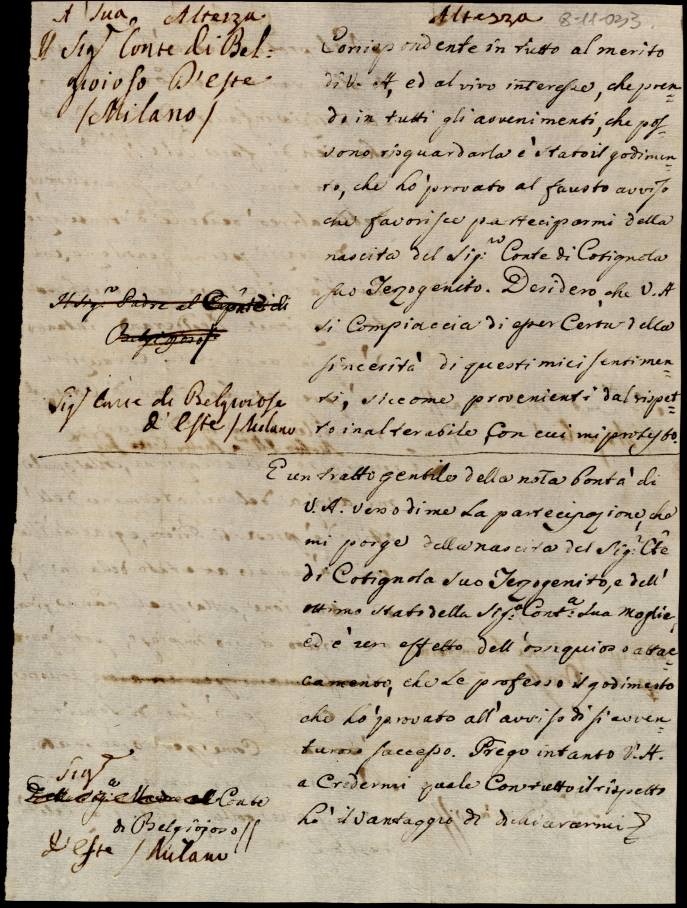 A Sua Altezza
Il Sig.r Conte di Bel-
gioioso D'Este
/Milano/
Altezza
8-11-023
Corrispondente in tutto al merito
di V. A, ed al vivo interesse, che pren-
do in tutti gli avvenimenti, che pos-
sono risguardarla è stato il godimen-
to, che hò provato al fausto avviso
che favorisce parteciparmi della
nascita del Sig.re Conte di Cotignola
suo Terzogenito. Desidero, che V. A
si Compiaccia di esser Certa della
sincerità di questi miei sentimen-
ti, siccome provenienti dal rispet-
to inalterabile con cui mi protesto.
Il Sig.r Padre al Conte di
Belgioioso
Sig.r Conte di Belgioioso
d'Este /Milano
E un tratto gentile della nota bontà di
V. A. verso di me La partecipazione, che
mi porge della nascita del Sig.r Cte
di Cotignola Suo Terzogenito, e dell'
ottimo stato della Sig.a Cont.a Sua Moglie,
ed è un effetto dell'ossequioso attac-
camento, che Le professo il godimento
che hò provato all'avviso di sì avven-
turoso successo. Prego intanto V. A.
a Credermi quale Con tutto il rispetto
hò il vantaggio di dichiararmi
Sig.r
Della Sig.a Madre al Conte
di Belgioioso//
d'Este /Milano